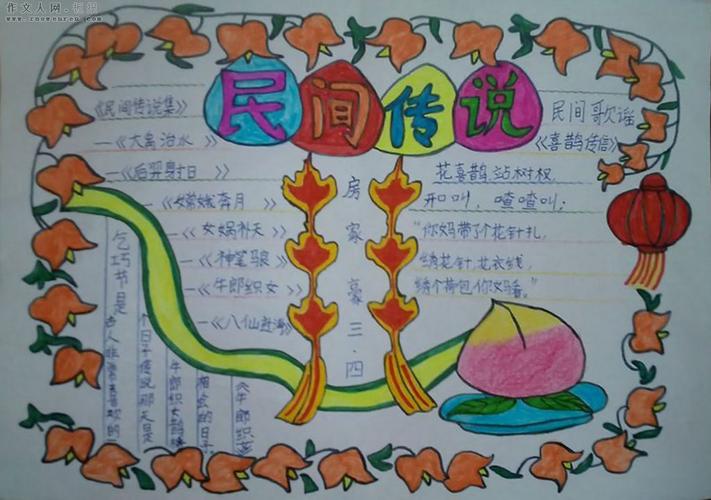 作文人网
民间传说
《民间传说集》
—《大禹治水》
—《后羿射日》
—《嫦娥奔月》
—《女娲补天》
—《神笔马良》
—《牛郎织女》
—《八仙过海》
房家豪三.四
民间歌谣
《喜鹊传信》
花喜鹊站树杈
开口叫，喳喳叫；
"你妈带了个花针扎，
绣花针，花衣线，
绣个荷包你妈看。"
乞巧节是
古人非常喜欢的
个日子传说那天是
牛郎织女鹊
相会的日子
牛郎织